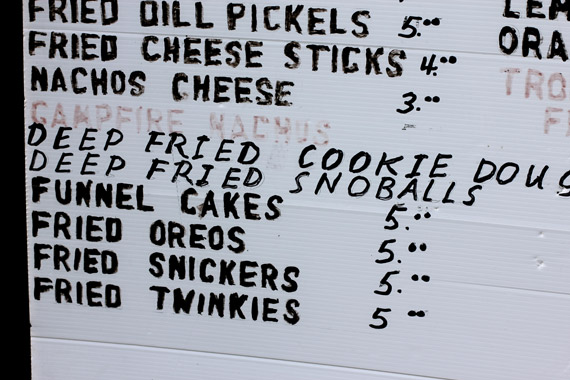 FRIED DILL PICKELS 5.00
FRIED CHEESE STICKS 4.00
NACHOS CHEESE 3.00
CAMPFIRE NACHOS
DEEP FRIED COOKIE DOUG
DEEP FRIED SNOBALLS
FUNNEL CAKES 5.00
FRIED OREOS 5.00
FRIED SNICKERS 5.00
FRIED TWINKIES 5 00
LEM
ORA
TRO
F